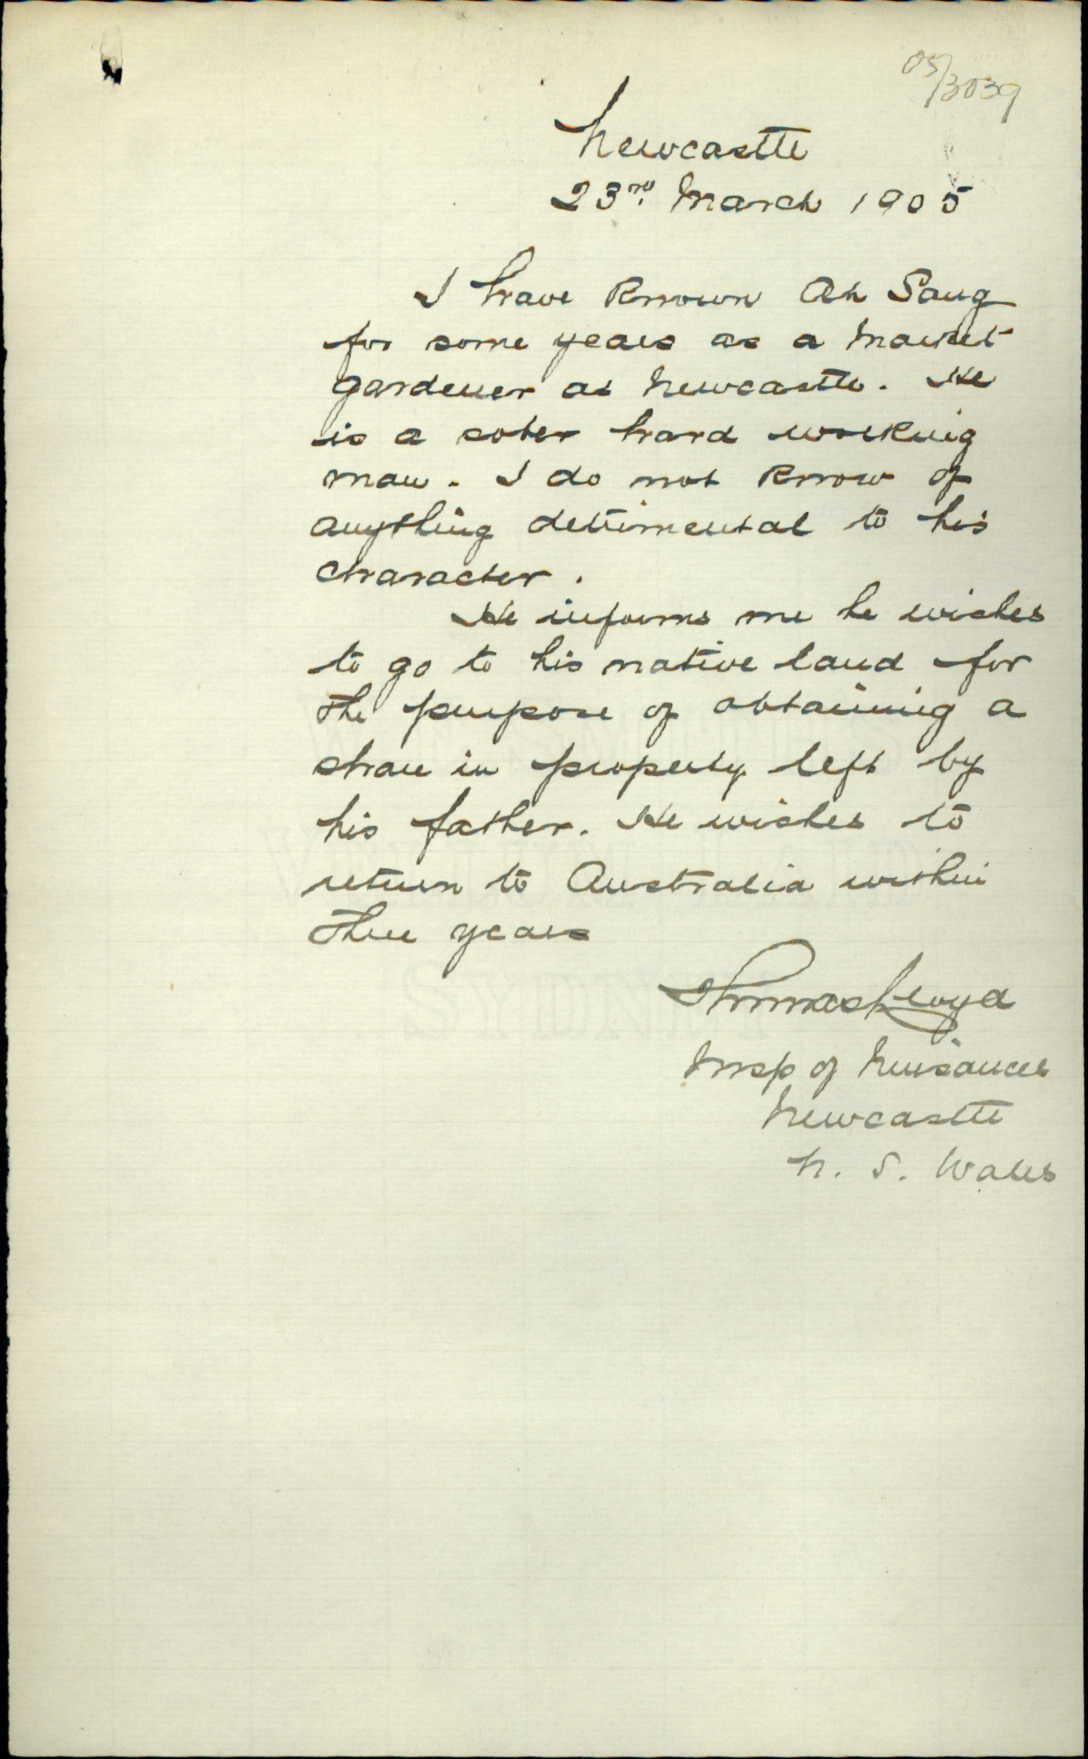 05/3039
Newcastle
23rd March 1905
I have known Ah Sang
for some years as a Market
gardener at Newcastle. He
is a sober hard working
man. I do not know of
anything detrimental to his
character.
He informs me he wishes
to go to his native land for
the purpose of obtaining a
share in property left by
his father. He wishes to
return to Australia within
three years
Thomas Lloyd
Insp of Nuisances
Newcastle
N. S. Wales
SYDNEY